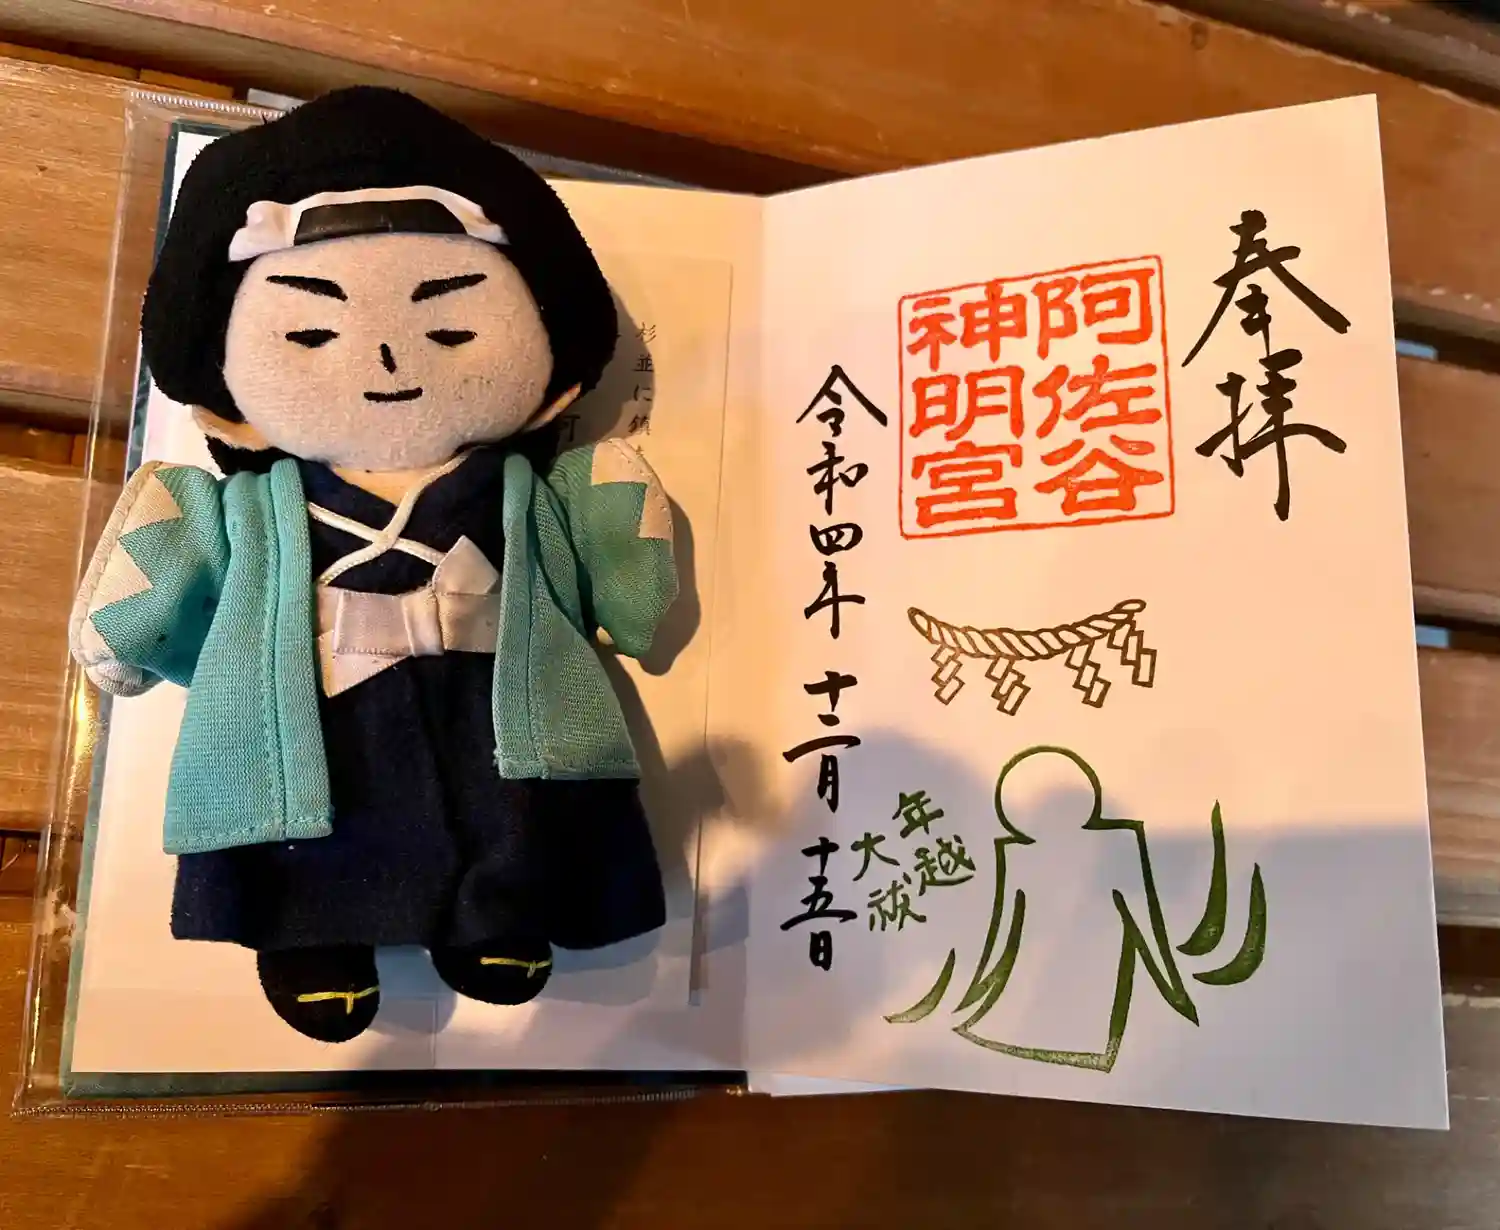 奉拝
阿佐谷
神明宮
令和四年十二月十五日
年越
大祓
杉並に鎮